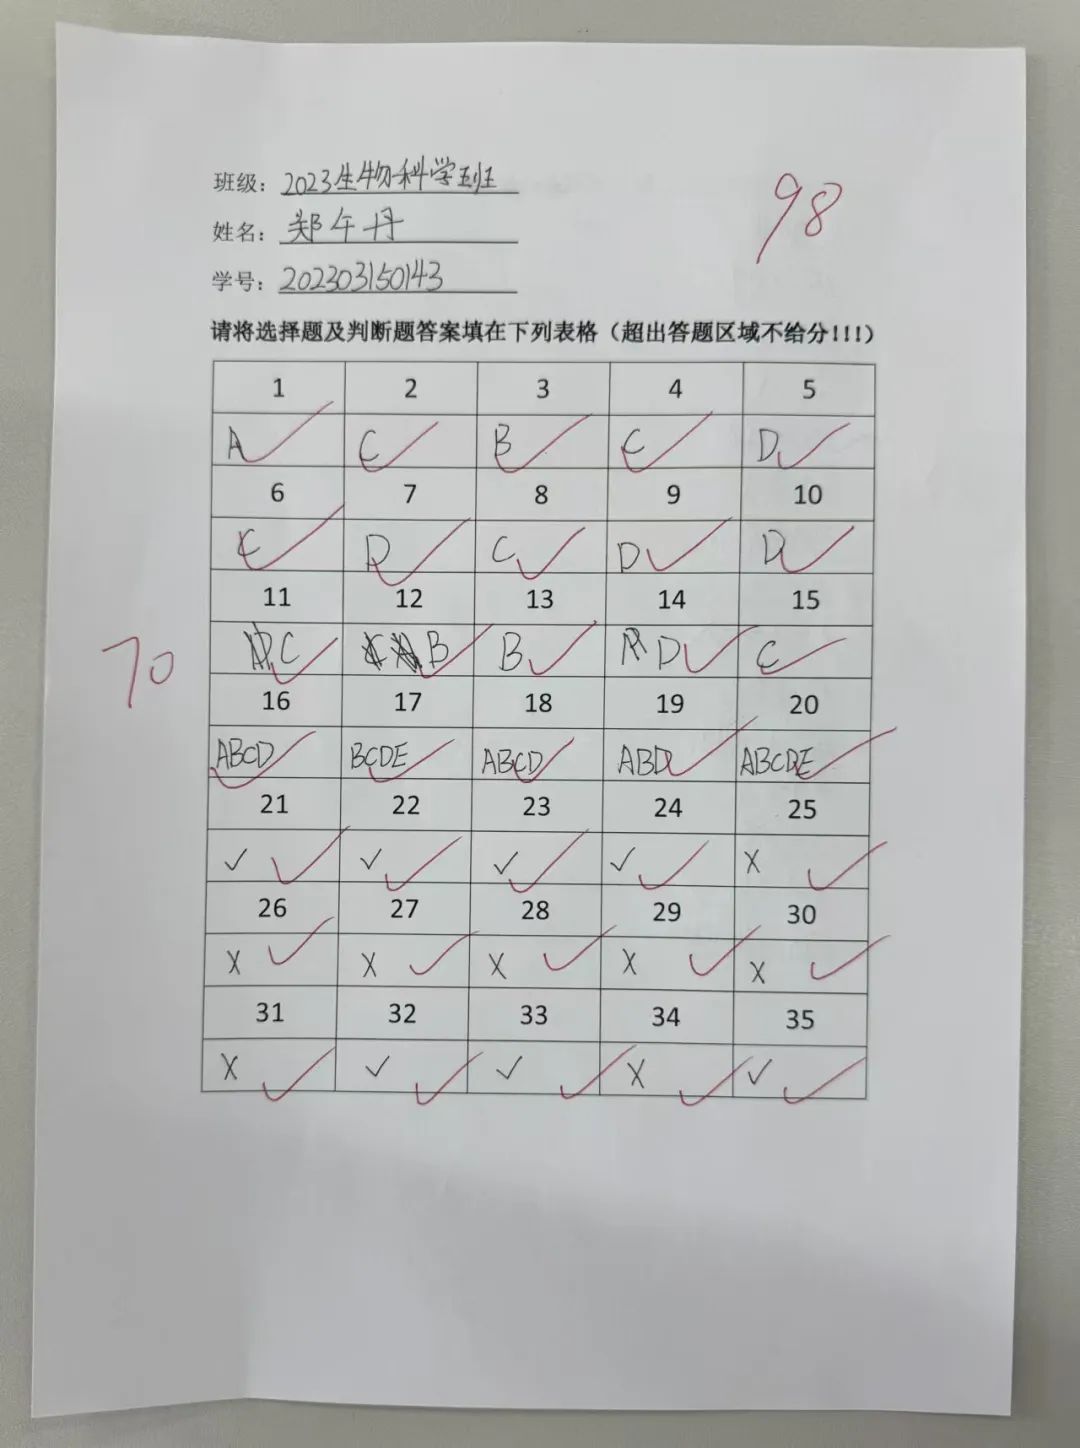 班级：2023生物科学班
98
姓名：郑午丹
学号：202303150143
请将选择题及判断题答案填在下列表格（超出答题区域不给分!!!）
1 2 3 4 5
A C B C D
6 7 8 9 10
C D C D D
11 12 13 14 15
C B B D C
70
16 17 18 19 20
ABCD BCDE ABCD ABD ABCDE
21 22 23 24 25
✓ ✓ ✓ ✓ X
26 27 28 29 30
X X X X X
31 32 33 34 35
X ✓ ✓ X ✓